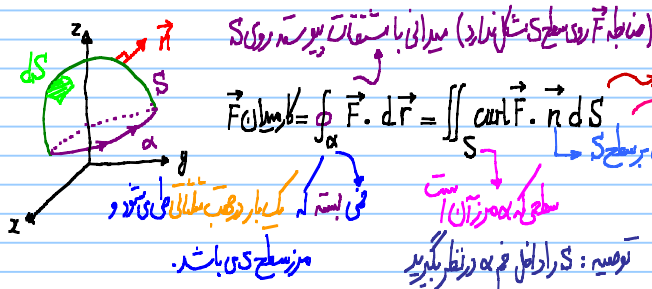 (ضابطه F⃗ روی سطح S مشکل ندارد) میدانی با مشتقات پیوسته روی S
z
n⃗
dS
S
α
y
x
کار میدان F⃗ = ∮_α F⃗ · dr⃗ = ∬_S curl F⃗ · n⃗ dS
بر سطح S
خمی بسته که یک بار در جهت مثلثاتی طی می‌شود و
مرز سطح S می باشد.
سطحی که α مرز آن است
توصیه : S را داخل خم α در نظر بگیرید